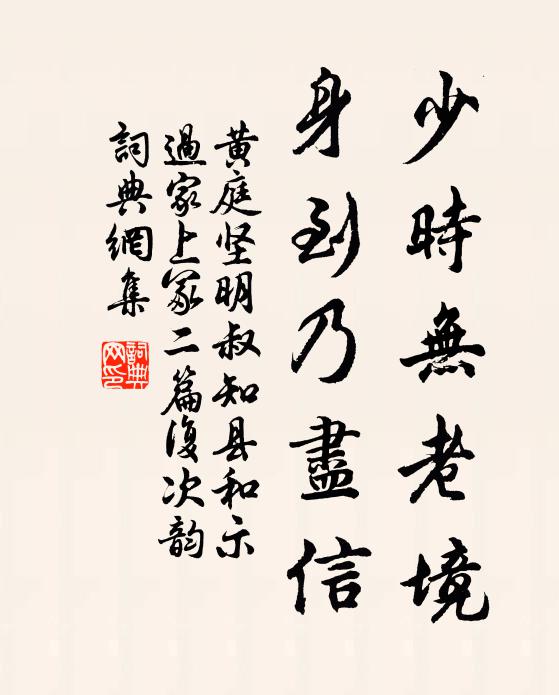 少時無老境
身到乃盡信
黄庭坚明叔知县和示
過家上冢二篇復次韵
詞典網集
詞典网印